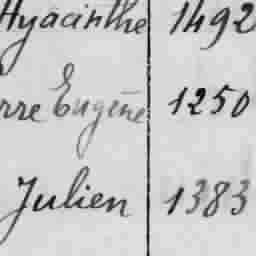 Hyacinthe 1492
rre Eugène 1250
Julien 1383